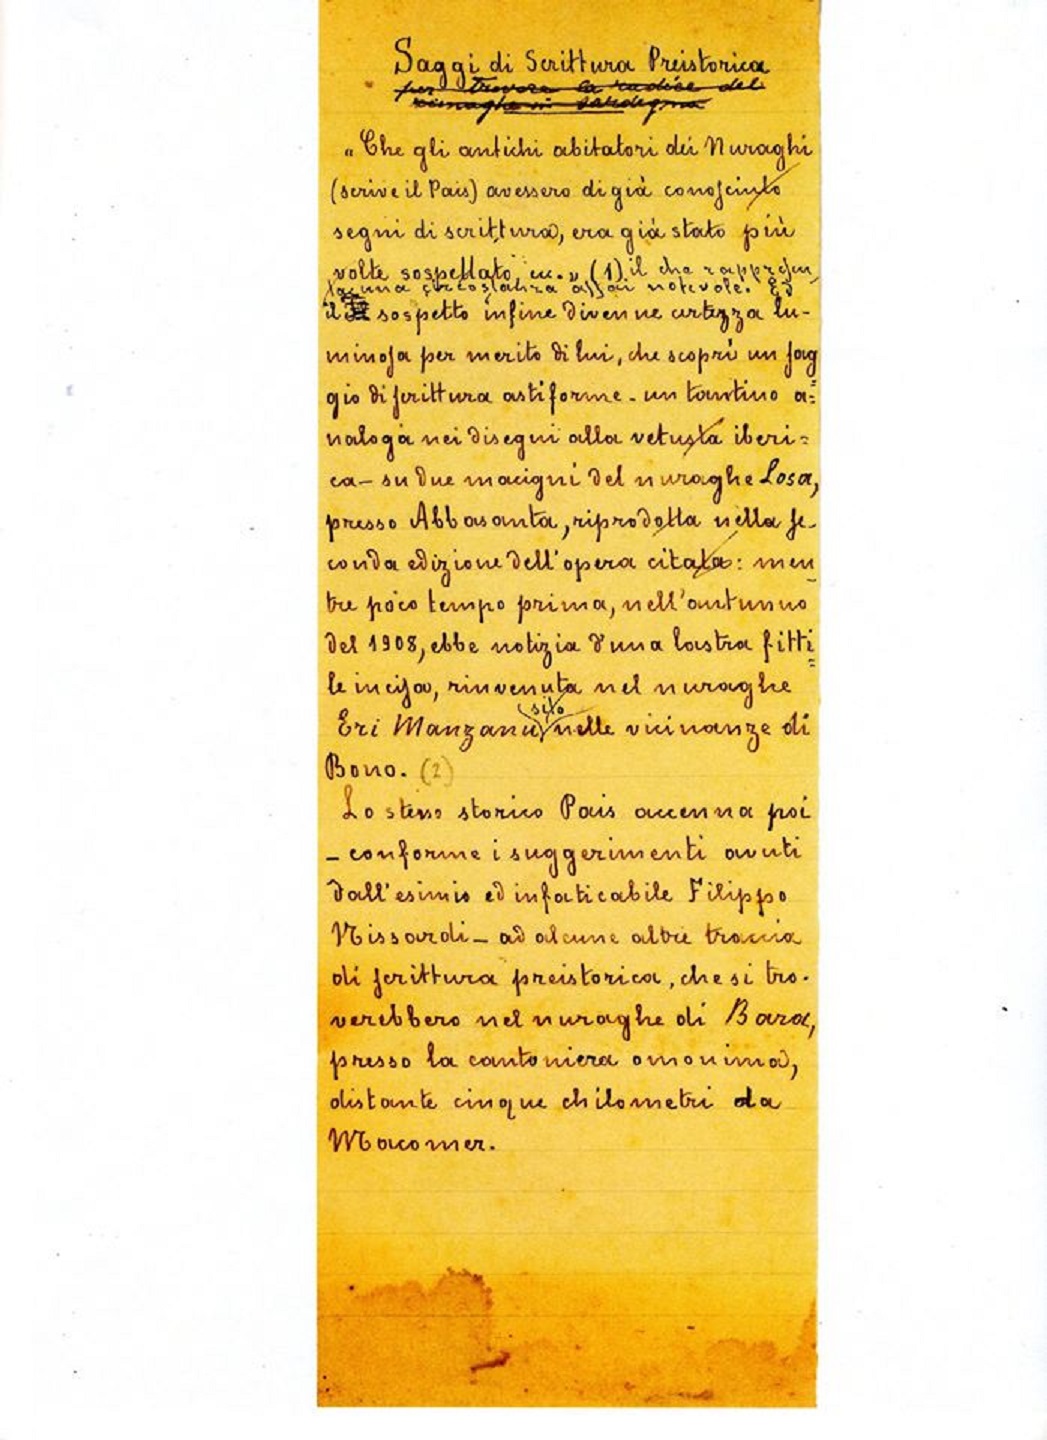 Saggi di Scrittura Preistorica
per trovare la radice del
in Sardegna
"Che gli antichi abitatori dei Nuraghi
(scrive il Pais) avessero di già conosciuto
segni di scrittura, era già stato più
volte sospettato, ec." (1) il che rappresen-
ta una circostanza assai notevole. Ed
il sospetto infine divenne certezza lu-
minosa per merito di lui, che scoprì un sag
gio di scrittura astiforme - un tantino a=
naloga nei disegni alla vetusta iberi=
ca - su due macigni del nuraghe Losa,
presso Abbasanta, riprodotta nella se-
conda edizione dell'opera citata: men
tre poco tempo prima, nell'autunno
del 1908, ebbe notizia d'una lastra fitti=
le incisa, rinvenuta nel nuraghe
sito
Eri Manzanu, nelle vicinanze di
Bono. (2)
Lo stesso storico Pais accenna poi
- conforme i suggerimenti avuti
dall'esimio ed infaticabile Filippo
Nissardi - ad alcune altre traccia
di scrittura preistorica, che si tro-
verebbero nel nuraghe di Bara,
presso la cantoniera omonima,
distante cinque chilometri da
Macomer.